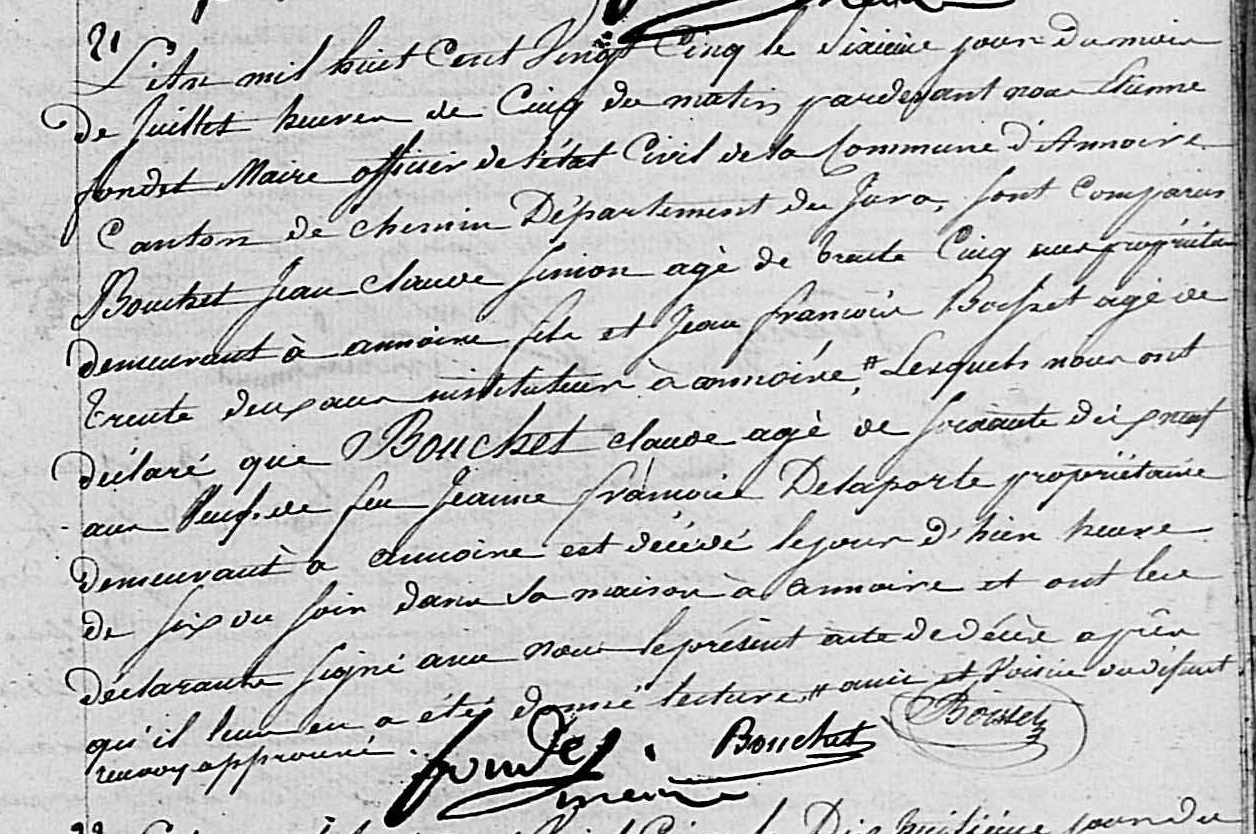 21
L'An mil huit Cent Vingt Cinq le Sixieme jour du mois
de Juillet heures de Cinq du matin pardevant nous Etienne
fondet Maire officier de l'état Civil de la Commune d'Annoire
Canton de chemin Département du Jura, sont Comparus
Bouchet Jean claude Simon agé de trente Cinq ans propriétaire
demeurant à annoire fils et Jean françois Boisset agé de
trente deux ans instituteur à annoire, # Lesquels nous ont
déclaré que Bouchet claude agé de soixante dix neuf
ans Veuf de feu Jeanne françoise Delaporte propriétaire
demeurant à annoire est décédé le jour d'hier heure
de six du soir dans sa maison à annoire et ont les
déclarants signé avec nous le présent acte de décès après
qu'il leur en a eté donné lecture # ami et Voisin du défunt
renvoy approuvé.
fondet Bouchet Boisset
maire
22
Dix huitième jour du